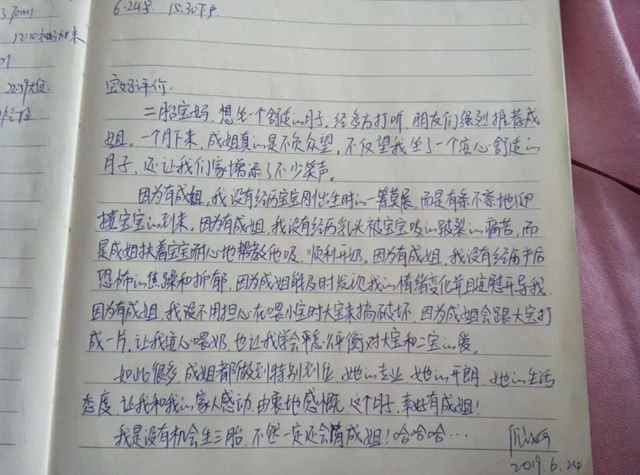 6.24号 15:30下户
宝妈评价:
二胎宝妈,想坐一个舒适的月子,经多方打听,朋友们强烈推荐成
姐。一个月下来,成姐真的是不负众望,不仅让我坐了一个安心舒适的
月子,还让我们家增添了不少笑声。
因为有成姐,我没有经历宝宝刚出生时的一筹莫展,而是有条不紊地迎
接宝宝的到来,因为有成姐,我没有经历乳头被宝宝吸的皲裂的痛苦,而
是成姐扶着宝宝耐心地帮教他吸,顺利开奶,因为有成姐,我没有经历产后
恐怖的焦躁和抑郁,因为成姐能及时发现我的情绪变化并且安慰开导我,
因为有成姐,我没不用担心在喂小宝时大宝来搞破坏,因为成姐会跟大宝打
成一片,让我安心喂奶,也让我学会平衡对大宝和二宝的爱。
如此很多,成姐都做到特别到位,她的专业,她的开朗,她的生活
态度,让我和我的家人感动,由衷地感慨,这个月子,幸好有成姐!
我是没有机会生三胎,不然一定还会请成姐!哈哈哈…
2019.6.24